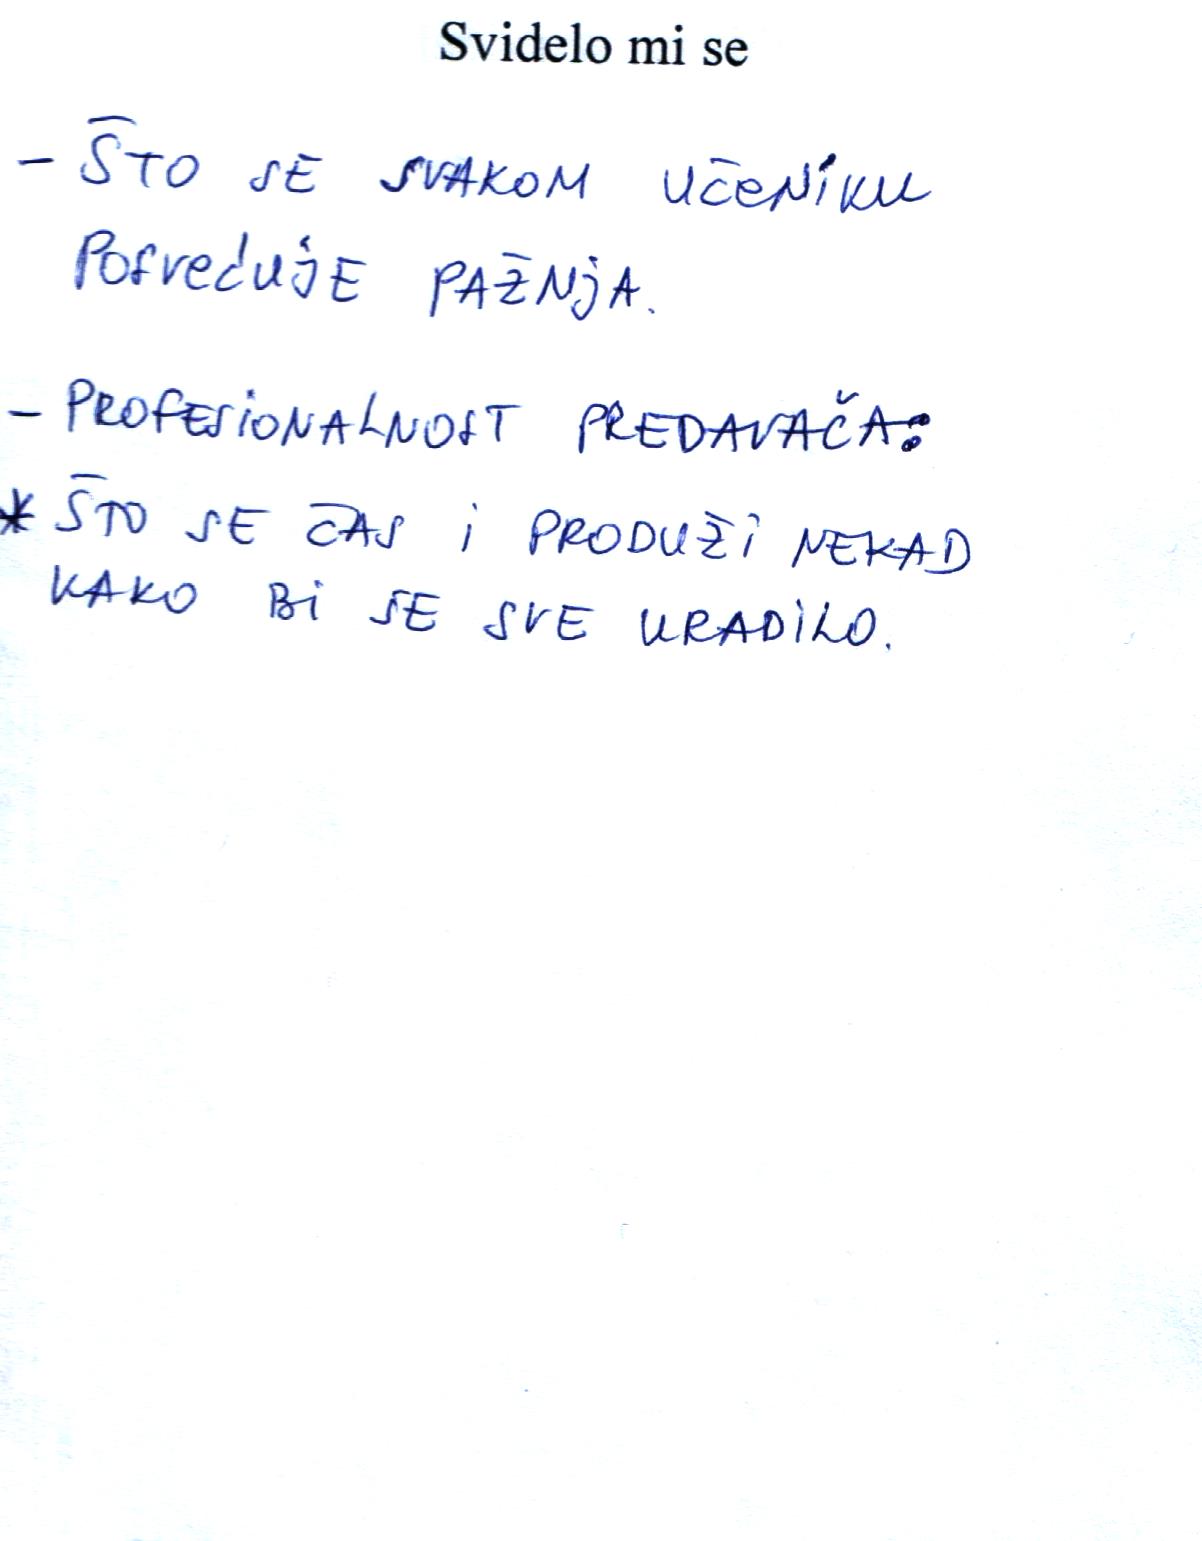 Svidelo mi se
- ŠTO SE SVAKOM UČENIKU
POSVEĆUJE PAŽNJA.
- PROFESIONALNOST PREDAVAČA:
* ŠTO SE ČAS I PRODUŽI NEKAD
KAKO BI SE SVE URADILO.